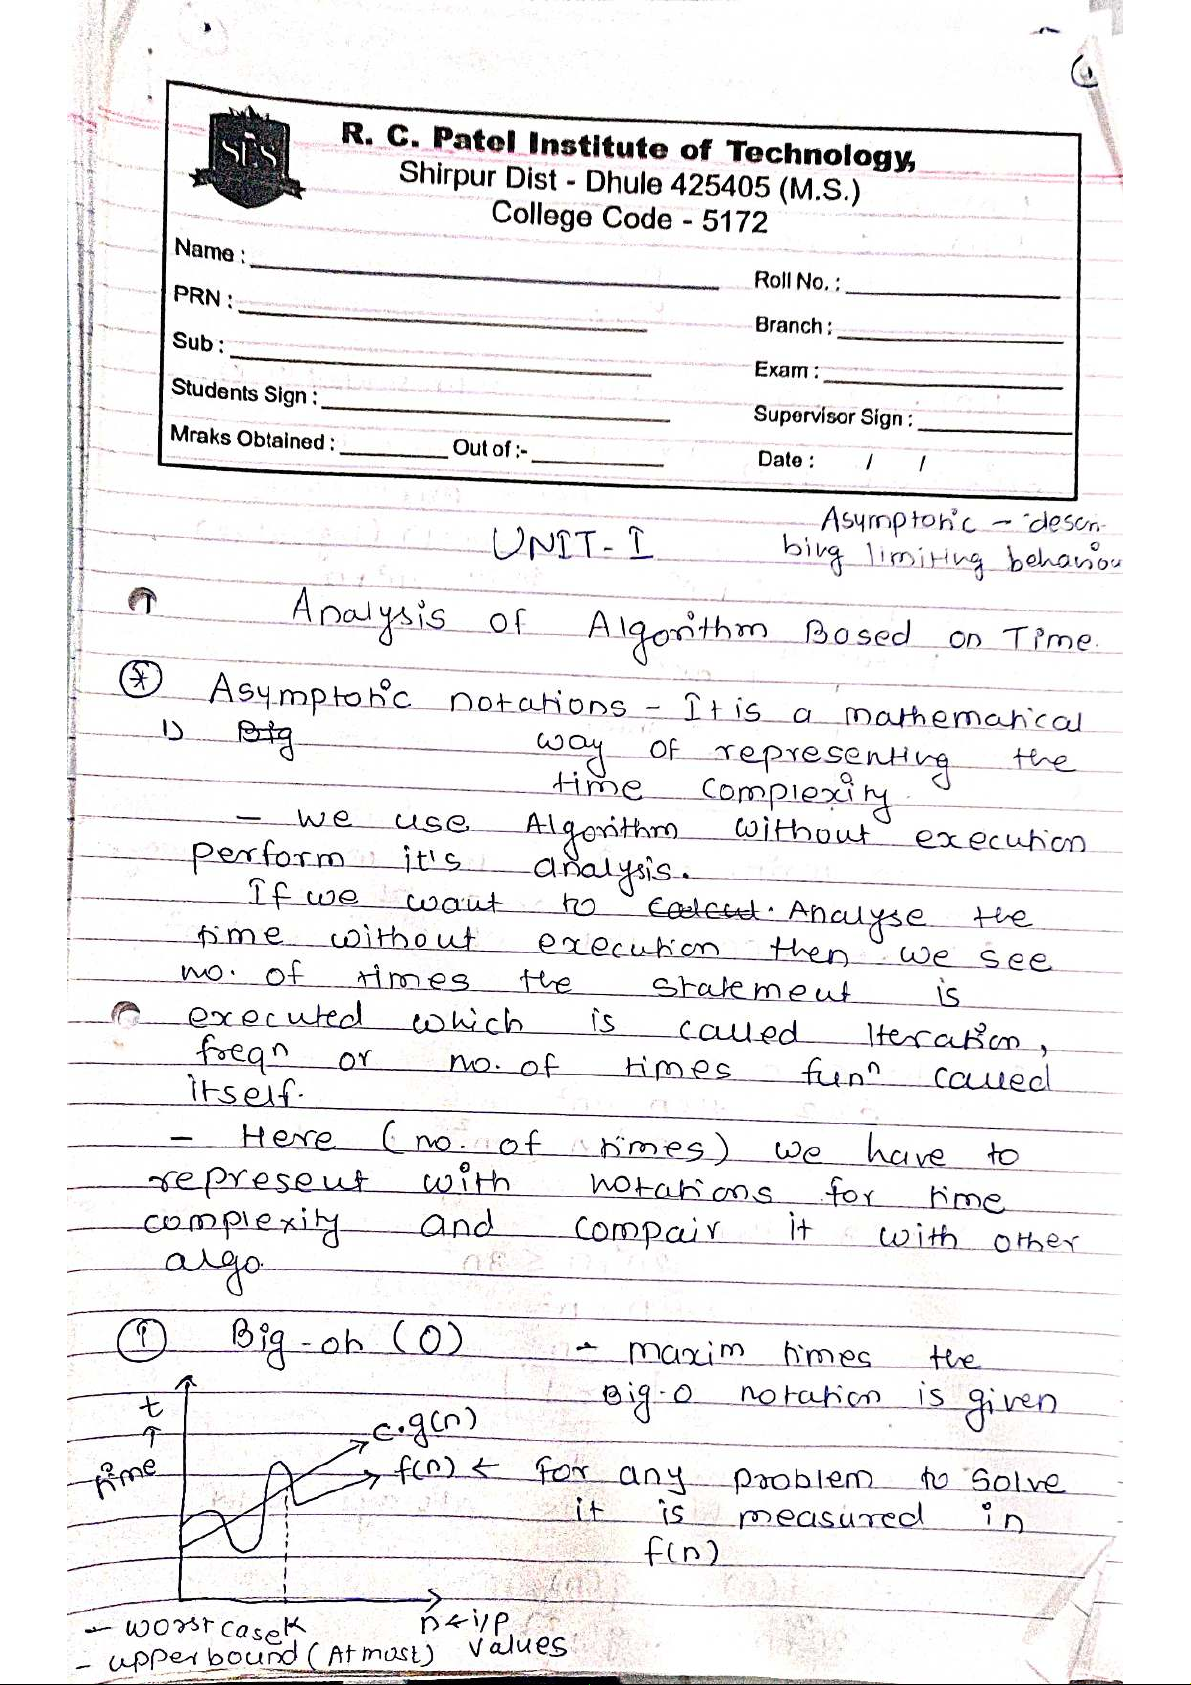 SES
R. C. Patel Institute of Technology,
Shirpur Dist - Dhule 425405 (M.S.)
College Code - 5172
Name :
Roll No. :
PRN :
Branch :
Sub :
Exam :
Students Sign :
Supervisor Sign :
Mraks Obtained : Out of :-
Date : / /
Asymptotic - descri-
bing limiting behaviou
UNIT - I
Analysis of Algorithm Based on Time.
* Asymptotic notations - It is a mathematical
1) Big way of representing the
time complexity.
- we use Algorithm without execution
perform it's analysis.
If we want to calcul. Analyse the
time without execution then we see
no. of times the statement is
executed which is called Iteration,
freqn or no. of times funⁿ called
itself.
- Here (no. of times) we have to
represent with notations for time
complexity and compair it with other
algo.
① Big-oh (O) - maxim times the
Big-O notation is given
t
↑
time
c.g(n)
f(n) ← for any problem to solve
it is measured in
f(n)
k
n ← i/p
values
- worst case
- upper bound (At most)